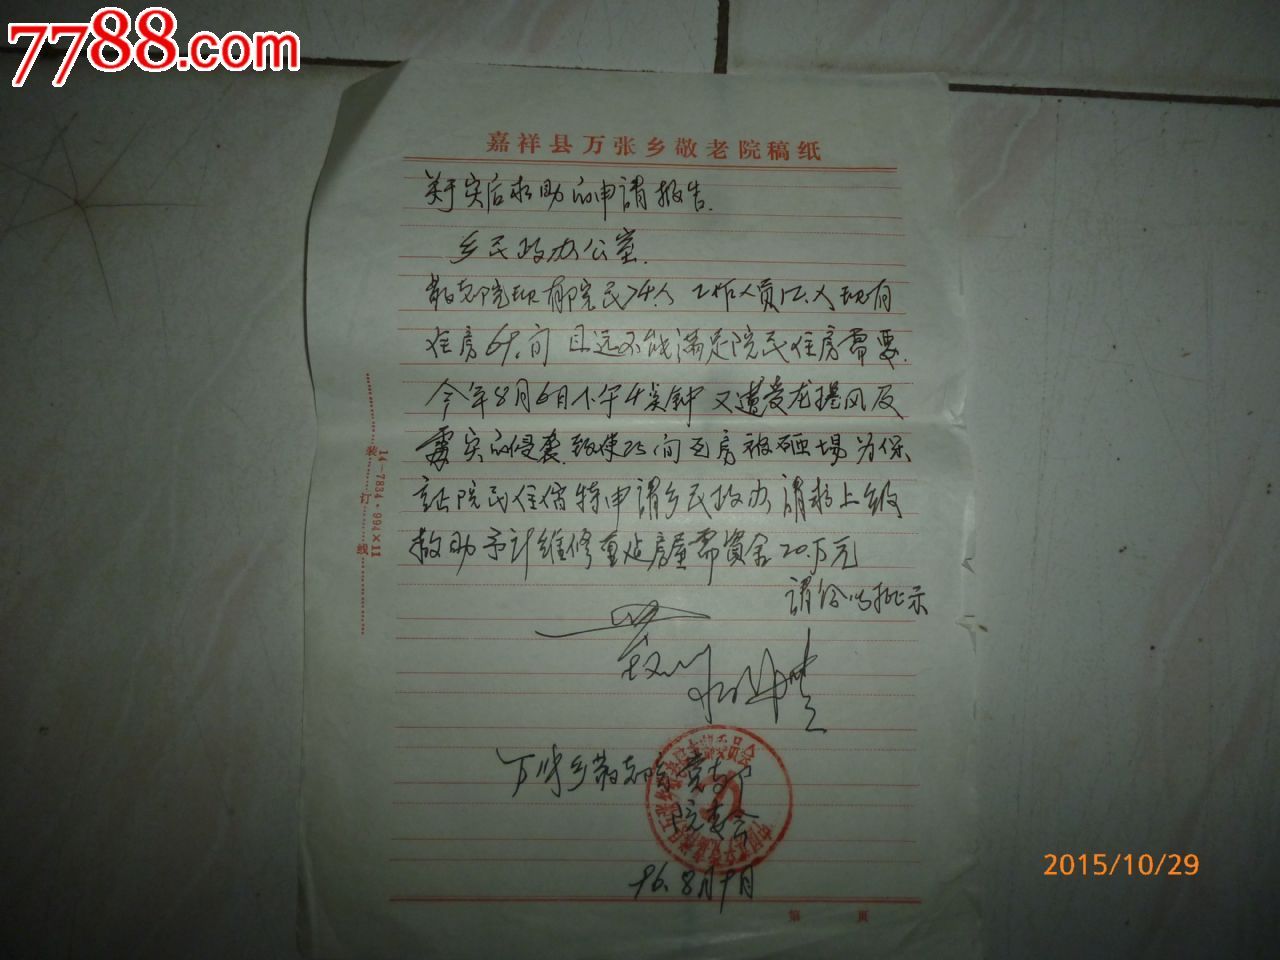 7788.com
嘉祥县万张乡敬老院稿纸
关于灾后求助的申請报告.
乡民政办公室.
敬老院现有院民74人 工作人员12人现有
住房69间 且远不能满足院民住房需要.
今年8月6日下午4点钟又遭受龙捲风及
雹灾的侵袭.致使25间瓦房被砸塌为保
证院民住宿特申请乡民政办請求上级
救助予计维修重建房屋需資金20万元
請给以批示
万张乡敬老院党支部
院委会
96.8月9日
装订线
14-7834·994×11
第 页
2015/10/29